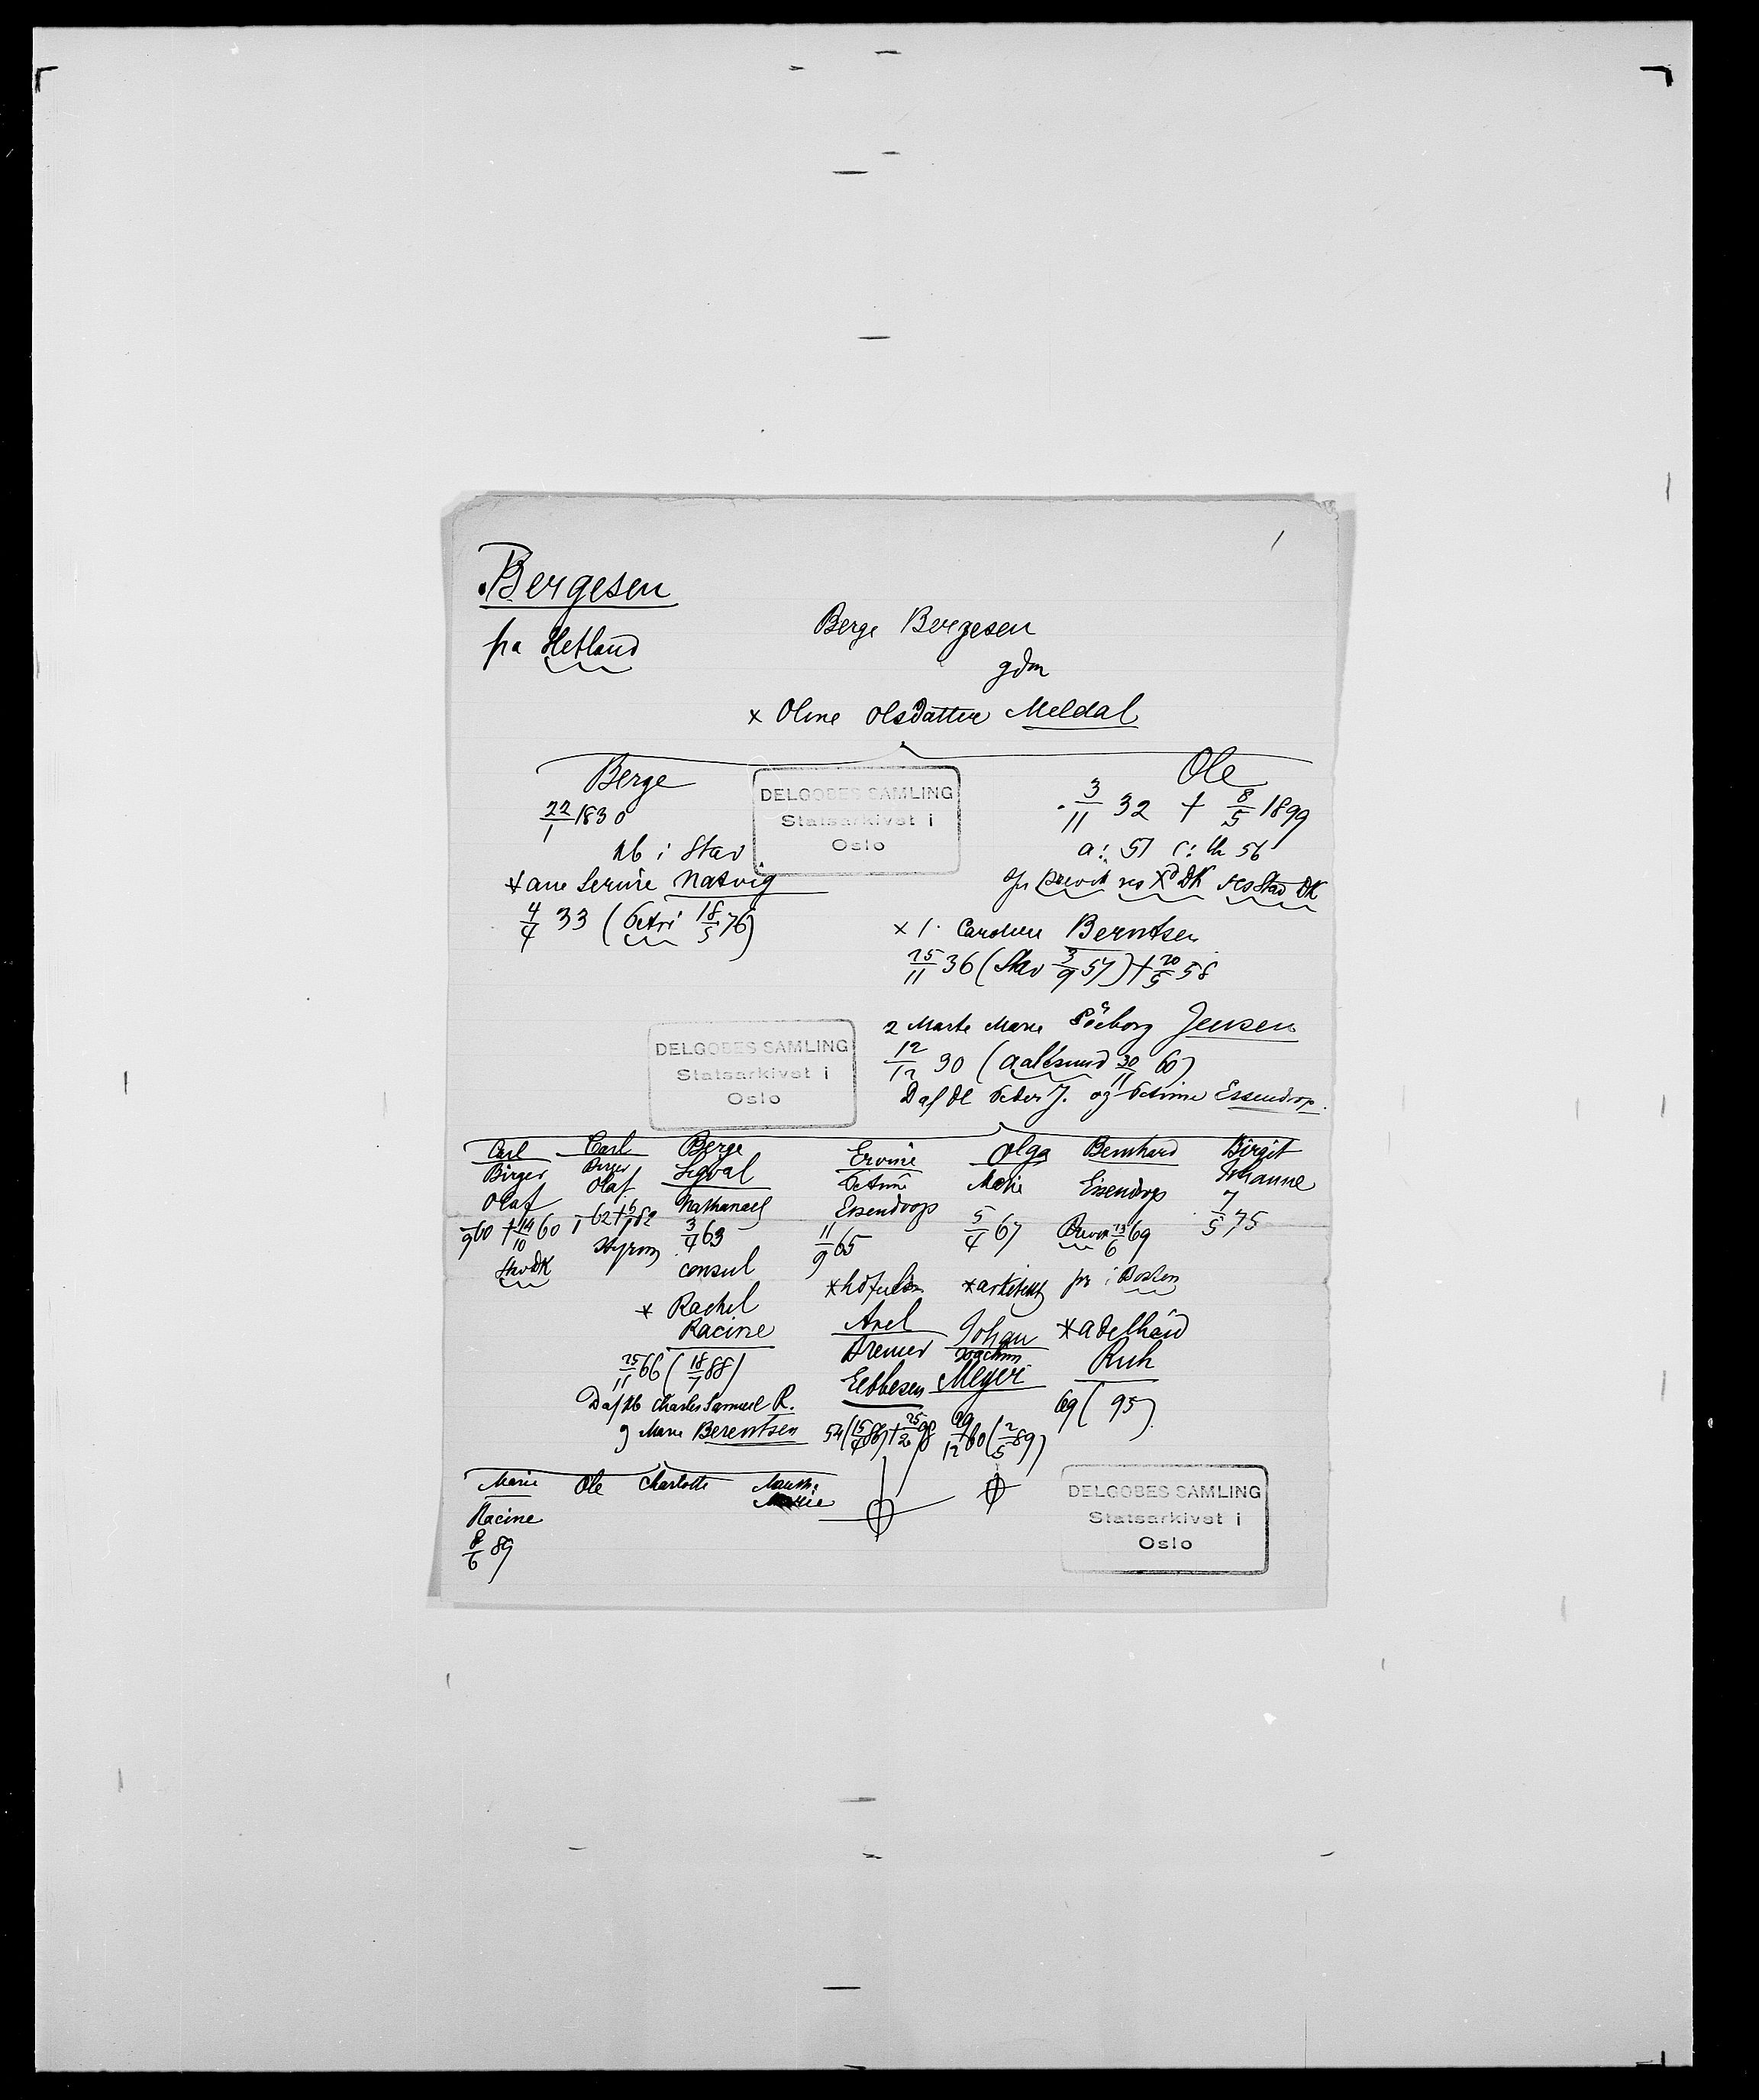 1
Bergesen
fra Hetland
Berge Bergesen
gdm
x Oline Olsdatter Meldal
Berge
22/1 1830
kb i Stav
x ane Serine Natvig
4/4 33 (Petri 18/5 76)
DELGOBES SAMLING
Statsarkivet i
Oslo
Ole
3/11 32 † 8/5 1899
a: 51 c: th 56
x 1. Caroline Berntsen
25/11 36 (Stav 3/9 57) † 20/5 58
2 Marte Marie Jensen
12/12 30 (Aalesund 30/11 60)
D af Peter J. og Petrine Essendrop.
DELGOBES SAMLING
Statsarkivet i
Oslo
Carl
Birger
Olaf
/9 60 † 14/10 60
Stav DK
Carl
Birger
Olaf
Styrm
Berge
Sigval
Nathanael
3/4 63
consul
x Rachel
Racine
25/11 66 (18/7 88)
D af kb Charles Samuel R.
g Marie Berentsen
Ervine
Petrine
Essendrop
11/9 65
Axel
Bremer
Ebbesen
Olga
Marie
5/4 67
x arkitekt
Johan
Joachim
Meyer
29/12 60 (2/5 89)
Bernhard
Essendrop
13/6 69
i Boston
x Adelhaid
Ruh
69 ( 95)
Birgit
Johanne
7/5 75
Marie
Racine
8/6 89
Ole
Charlotte
DELGOBES SAMLING
Statsarkivet i
Oslo